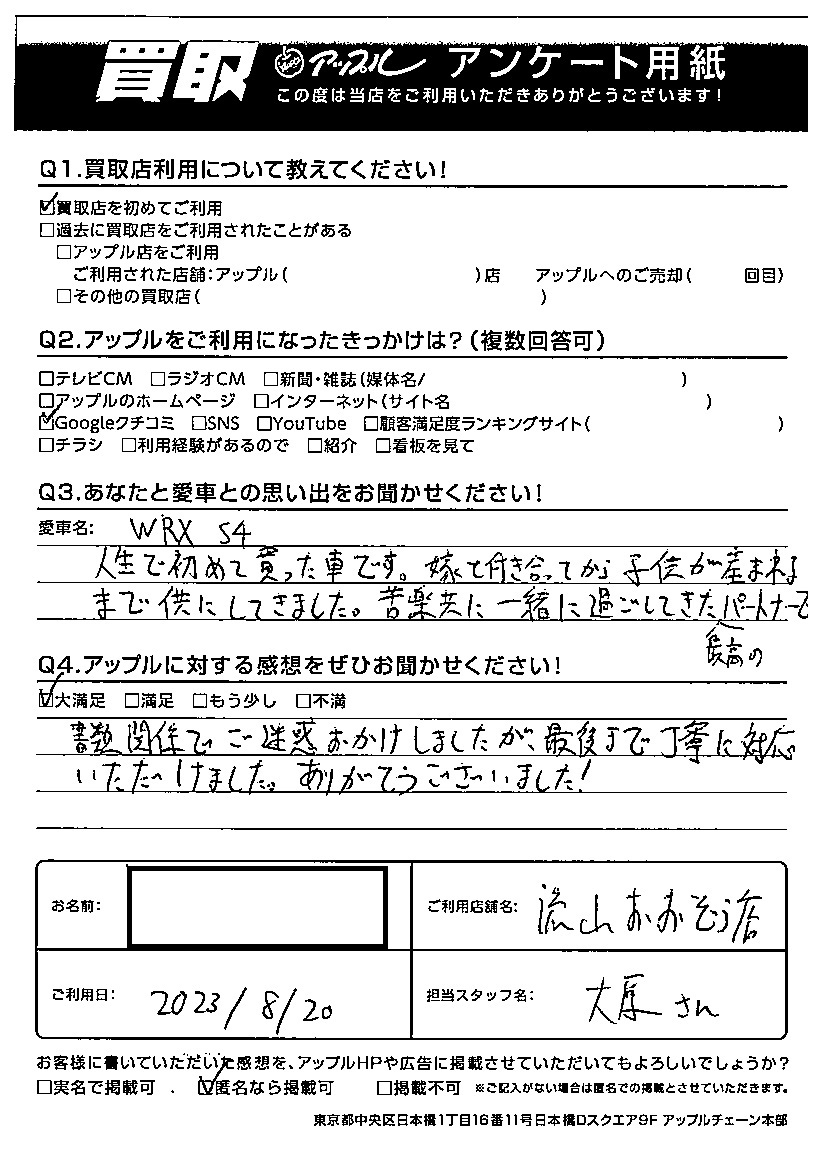 買取 アップル アンケート用紙
この度は当店をご利用いただきありがとうございます!
Q1.買取店利用について教えてください!
☑買取店を初めてご利用
□過去に買取店をご利用されたことがある
□アップル店をご利用
ご利用された店舗:アップル( )店 アップルへのご売却( 回目)
□その他の買取店( )
Q2.アップルをご利用になったきっかけは?(複数回答可)
□テレビCM □ラジオCM □新聞・雑誌(媒体名/ )
□アップルのホームページ □インターネット(サイト名 )
☑Googleクチコミ □SNS □YouTube □顧客満足度ランキングサイト( )
□チラシ □利用経験があるので □紹介 □看板を見て
Q3.あなたと愛車との思い出をお聞かせください!
愛車名: WRX S4
人生で初めて買った車です。嫁と付き合ってから子供が産まれる
まで供にしてきました。苦楽共に一緒に過ごしてきたパートナーで
最高の
Q4.アップルに対する感想をぜひお聞かせください!
☑大満足 □満足 □もう少し □不満
書類関係でご迷惑おかけしましたが、最後まで丁寧に対応
いただけました。ありがとうございました!
お名前: ご利用店舗名: 流山おおぞう店
ご利用日: 2023/8/20 担当スタッフ名: 大原さん
お客様に書いていただいた感想を、アップルHPや広告に掲載させていただいてもよろしいでしょうか?
□実名で掲載可 . ☑匿名なら掲載可 □掲載不可 ※ご記入がない場合は匿名での掲載とさせていただきます。
東京都中央区日本橋1丁目16番11号日本橋Dスクエア9F アップルチェーン本部